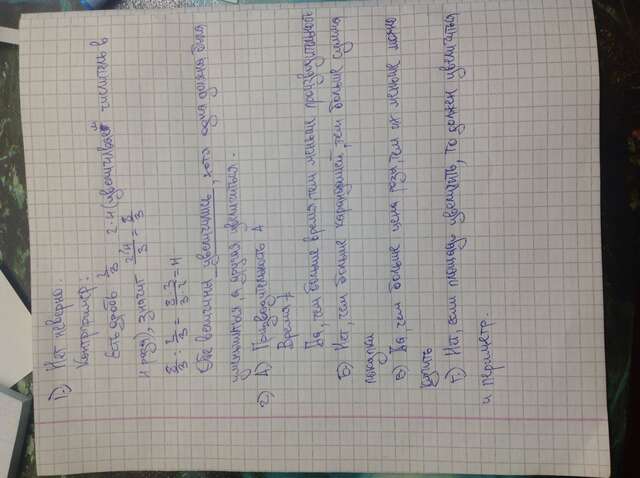 1) Нет неверно.
Контрпример:
Есть дробь 2/3 2·4 (увеличивает числитель в
4 раза), значит 2·4/3 = 8/3
8/3 : 2/3 = 8/3 · 3/2 = 4
Обе величины увеличились, хотя одна должна была
уменьшиться, а другая увеличиться.
2) А) Производительность А
Время
Да, чем больше время, тем меньше производительность
Б) Нет, чем больше карандашей, тем больше сумма
покупки
В) Да, чем больше цена розы, тем их меньше можно
купить
Г) Нет, если площадь увеличить, то должен увеличиться
и периметр.